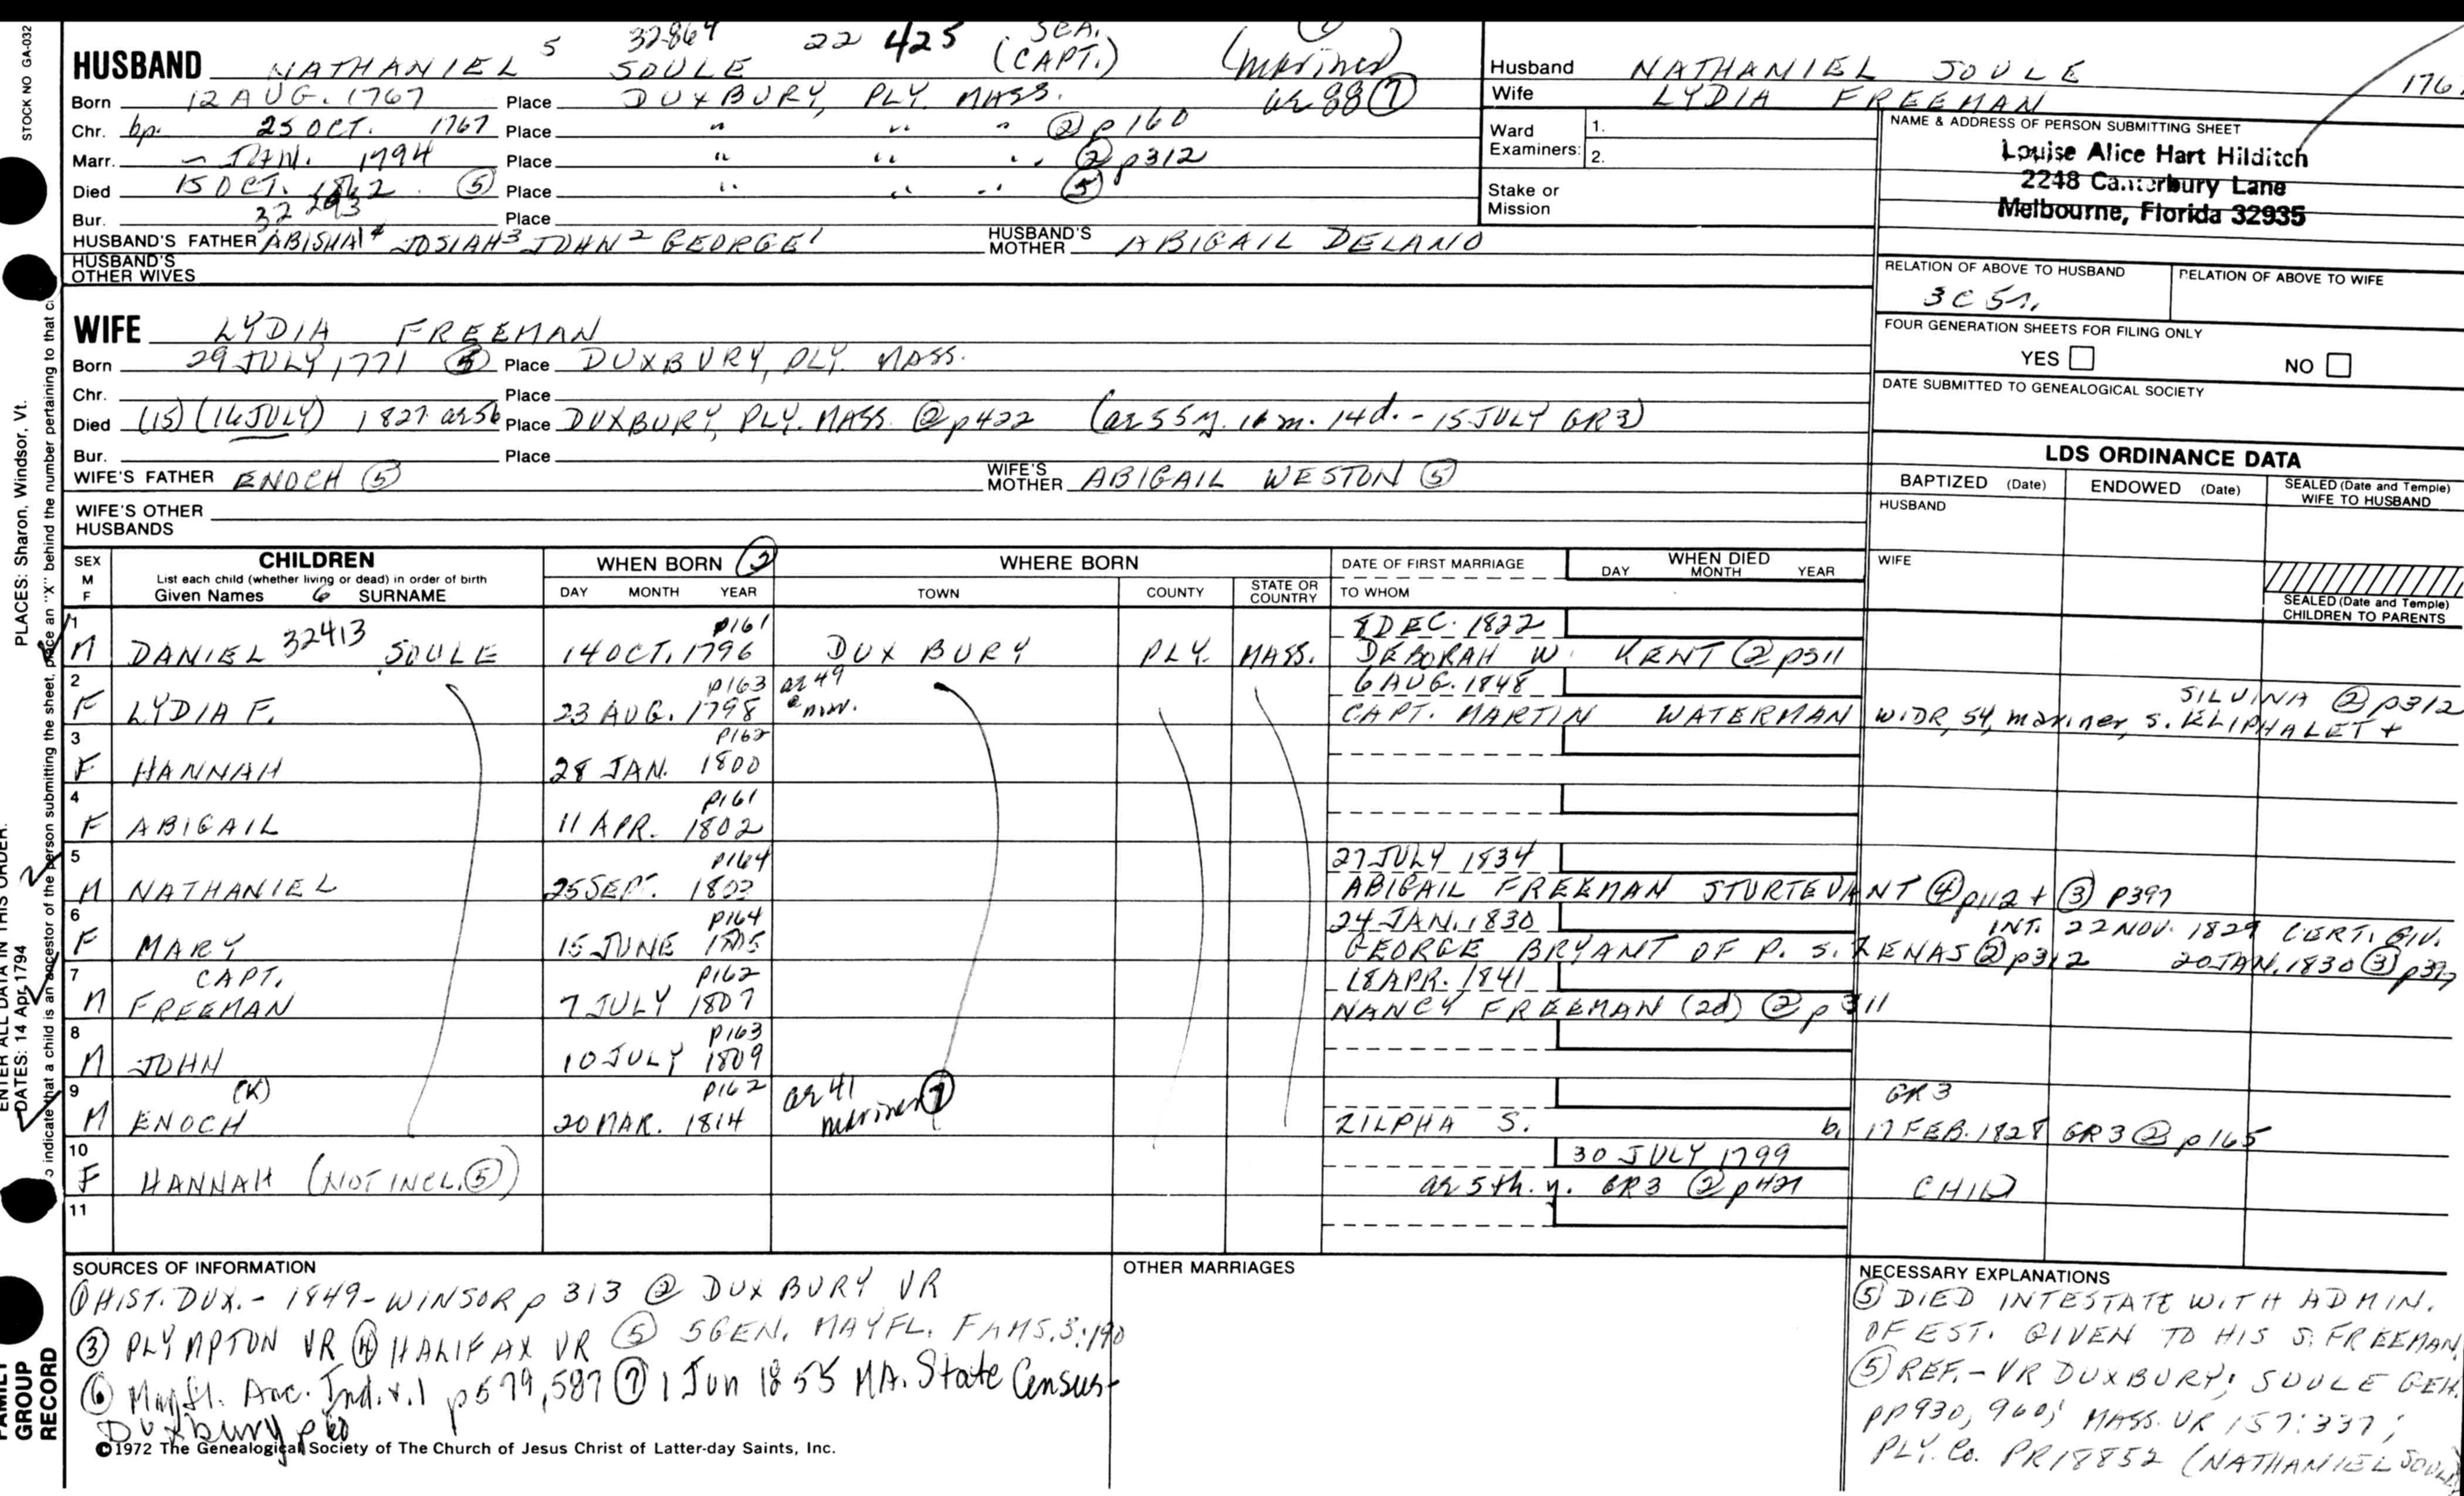 STOCK NO GA-032
32864 22 425 SEA.
HUSBAND NATHANIEL 5 SOULE (CAPT.) (mariner)
Born 12 AUG. 1767 Place DUXBURY, PLY. MASS. ae 88 ⑦
Chr. bp. 25 OCT. 1767 Place " " " ② p 160
Marr. – JAN. 1794 Place " " " ② p312
Died 15 OCT. ⑤ Place " " " ⑤
Bur. Place
HUSBAND'S FATHER ABISHAI 4 JOSIAH 3 JOHN 2 GEORGE 1 HUSBAND'S MOTHER ABIGAIL DELANO
HUSBAND'S OTHER WIVES
WIFE LYDIA FREEMAN
Born 29 JULY 1771 ⑤ Place DUXBURY, PLY. MASS.
Chr. Place
Died (15) (16 JULY) 1827 ae 56 Place DUXBURY, PLY. MASS. ② p422 (ae 55 y. 11 m. 14 d. – 15 JULY GR3)
Bur. Place
WIFE'S FATHER ENOCH ⑤ WIFE'S MOTHER ABIGAIL WESTON ⑤
WIFE'S OTHER HUSBANDS
Husband NATHANIEL SOULE 176
Wife LYDIA FREEMAN
Ward Examiners: 1. 2.
Stake or Mission
NAME & ADDRESS OF PERSON SUBMITTING SHEET
Louise Alice Hart Hilditch
2248 Canterbury Lane
Melbourne, Florida 32935
RELATION OF ABOVE TO HUSBAND RELATION OF ABOVE TO WIFE
3 C 5 r.
FOUR GENERATION SHEETS FOR FILING ONLY
YES NO
DATE SUBMITTED TO GENEALOGICAL SOCIETY
LDS ORDINANCE DATA
BAPTIZED (Date) ENDOWED (Date) SEALED (Date and Temple) WIFE TO HUSBAND
HUSBAND
WIFE
SEALED (Date and Temple) CHILDREN TO PARENTS
SEX M F CHILDREN WHEN BORN ② WHERE BORN DATE OF FIRST MARRIAGE WHEN DIED
List each child (whether living or dead) in order of birth
Given Names 6 SURNAME DAY MONTH YEAR TOWN COUNTY STATE OR COUNTRY TO WHOM DAY MONTH YEAR
1 p161 8 DEC. 1822
M DANIEL 32413 SOULE 14 OCT. 1796 DUXBURY PLY. MASS. DEBORAH W. KENT ② p311
2 p163 ae 49 6 AUG. 1848 SILVINA ② p312
F LYDIA F. 23 AUG. 1798 @ mar. CAPT. MARTIN WATERMAN WIDR, 54, mariner, S. ELIPHALET +
3 p162
F HANNAH 28 JAN. 1800
4 p161
F ABIGAIL 11 APR. 1802
5 p164 27 JULY 1834
M NATHANIEL 25 SEPT. 1803 ABIGAIL FREEMAN STURTEVANT ④ p112 + ③ p397
6 p164 24 JAN. 1830 INT. 22 NOV. 1829 CERT. GIV.
F MARY 15 JUNE 1805 GEORGE BRYANT OF P. S. ZENAS ② p312 20 JAN. 1830 ③ p397
7 CAPT. p162 18 APR. 1841
M FREEMAN 7 JULY 1807 NANCY FREEMAN (2d) ② p 311
8 p163
M JOHN 10 JULY 1809
9 (K) p162 ae 41 GR3
M ENOCH 20 MAR. 1814 mariner ⑦ ZILPHA S. b. 17 FEB. 1828 GR3 ② p165
10 30 JULY 1799
F HANNAH (NOT INCL. ⑤) ae 5th. y. GR3 ② p421 CHILD
11
SOURCES OF INFORMATION
① HIST. DUX. – 1849 – WINSOR p 313 ② DUXBURY VR
③ PLYMPTON VR ④ HALIFAX VR ⑤ 5GEN. MAYFL. FAMS. 3:190
⑥ Mayfl. Anc. Ind. v.1 p579, 587 ⑦ 1 Jun 1855 MA. State Census
Duxbury p60
©1972 The Genealogical Society of The Church of Jesus Christ of Latter-day Saints, Inc.
OTHER MARRIAGES
NECESSARY EXPLANATIONS
⑤ DIED INTESTATE WITH ADMIN.
OF EST. GIVEN TO HIS S. FREEMAN
⑤ REF. – VR DUXBURY; SOULE GEN.
PP 930, 960; MASS. VR 157:337;
PLY. Co. PR 18852 (NATHANIEL SOULE)
PLACES: Sharon, Windsor, Vt.
ENTER ALL DATA IN THIS ORDER:
DATES: 14 Apr 1794
o indicate that a child is an ancestor of the person submitting the sheet, place an "X" behind the number pertaining to that c
FAMILY GROUP RECORD